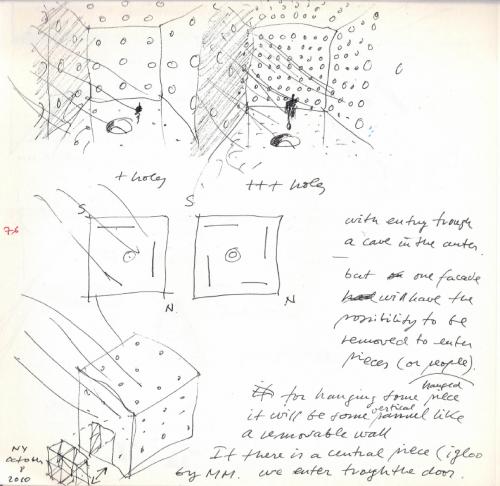 + holes
+++ holes
S
S
N
N
7.6
with entry trough
a cave in the center.
but one facade
will have the
possibility to be
removed to enter
pieces (or people).
hanged
for hanging some piece
it will be some vertical pannel like
a removable wall
If there is a central piece (igloo
by MM. we enter trough the door.
NY
october
8
2010